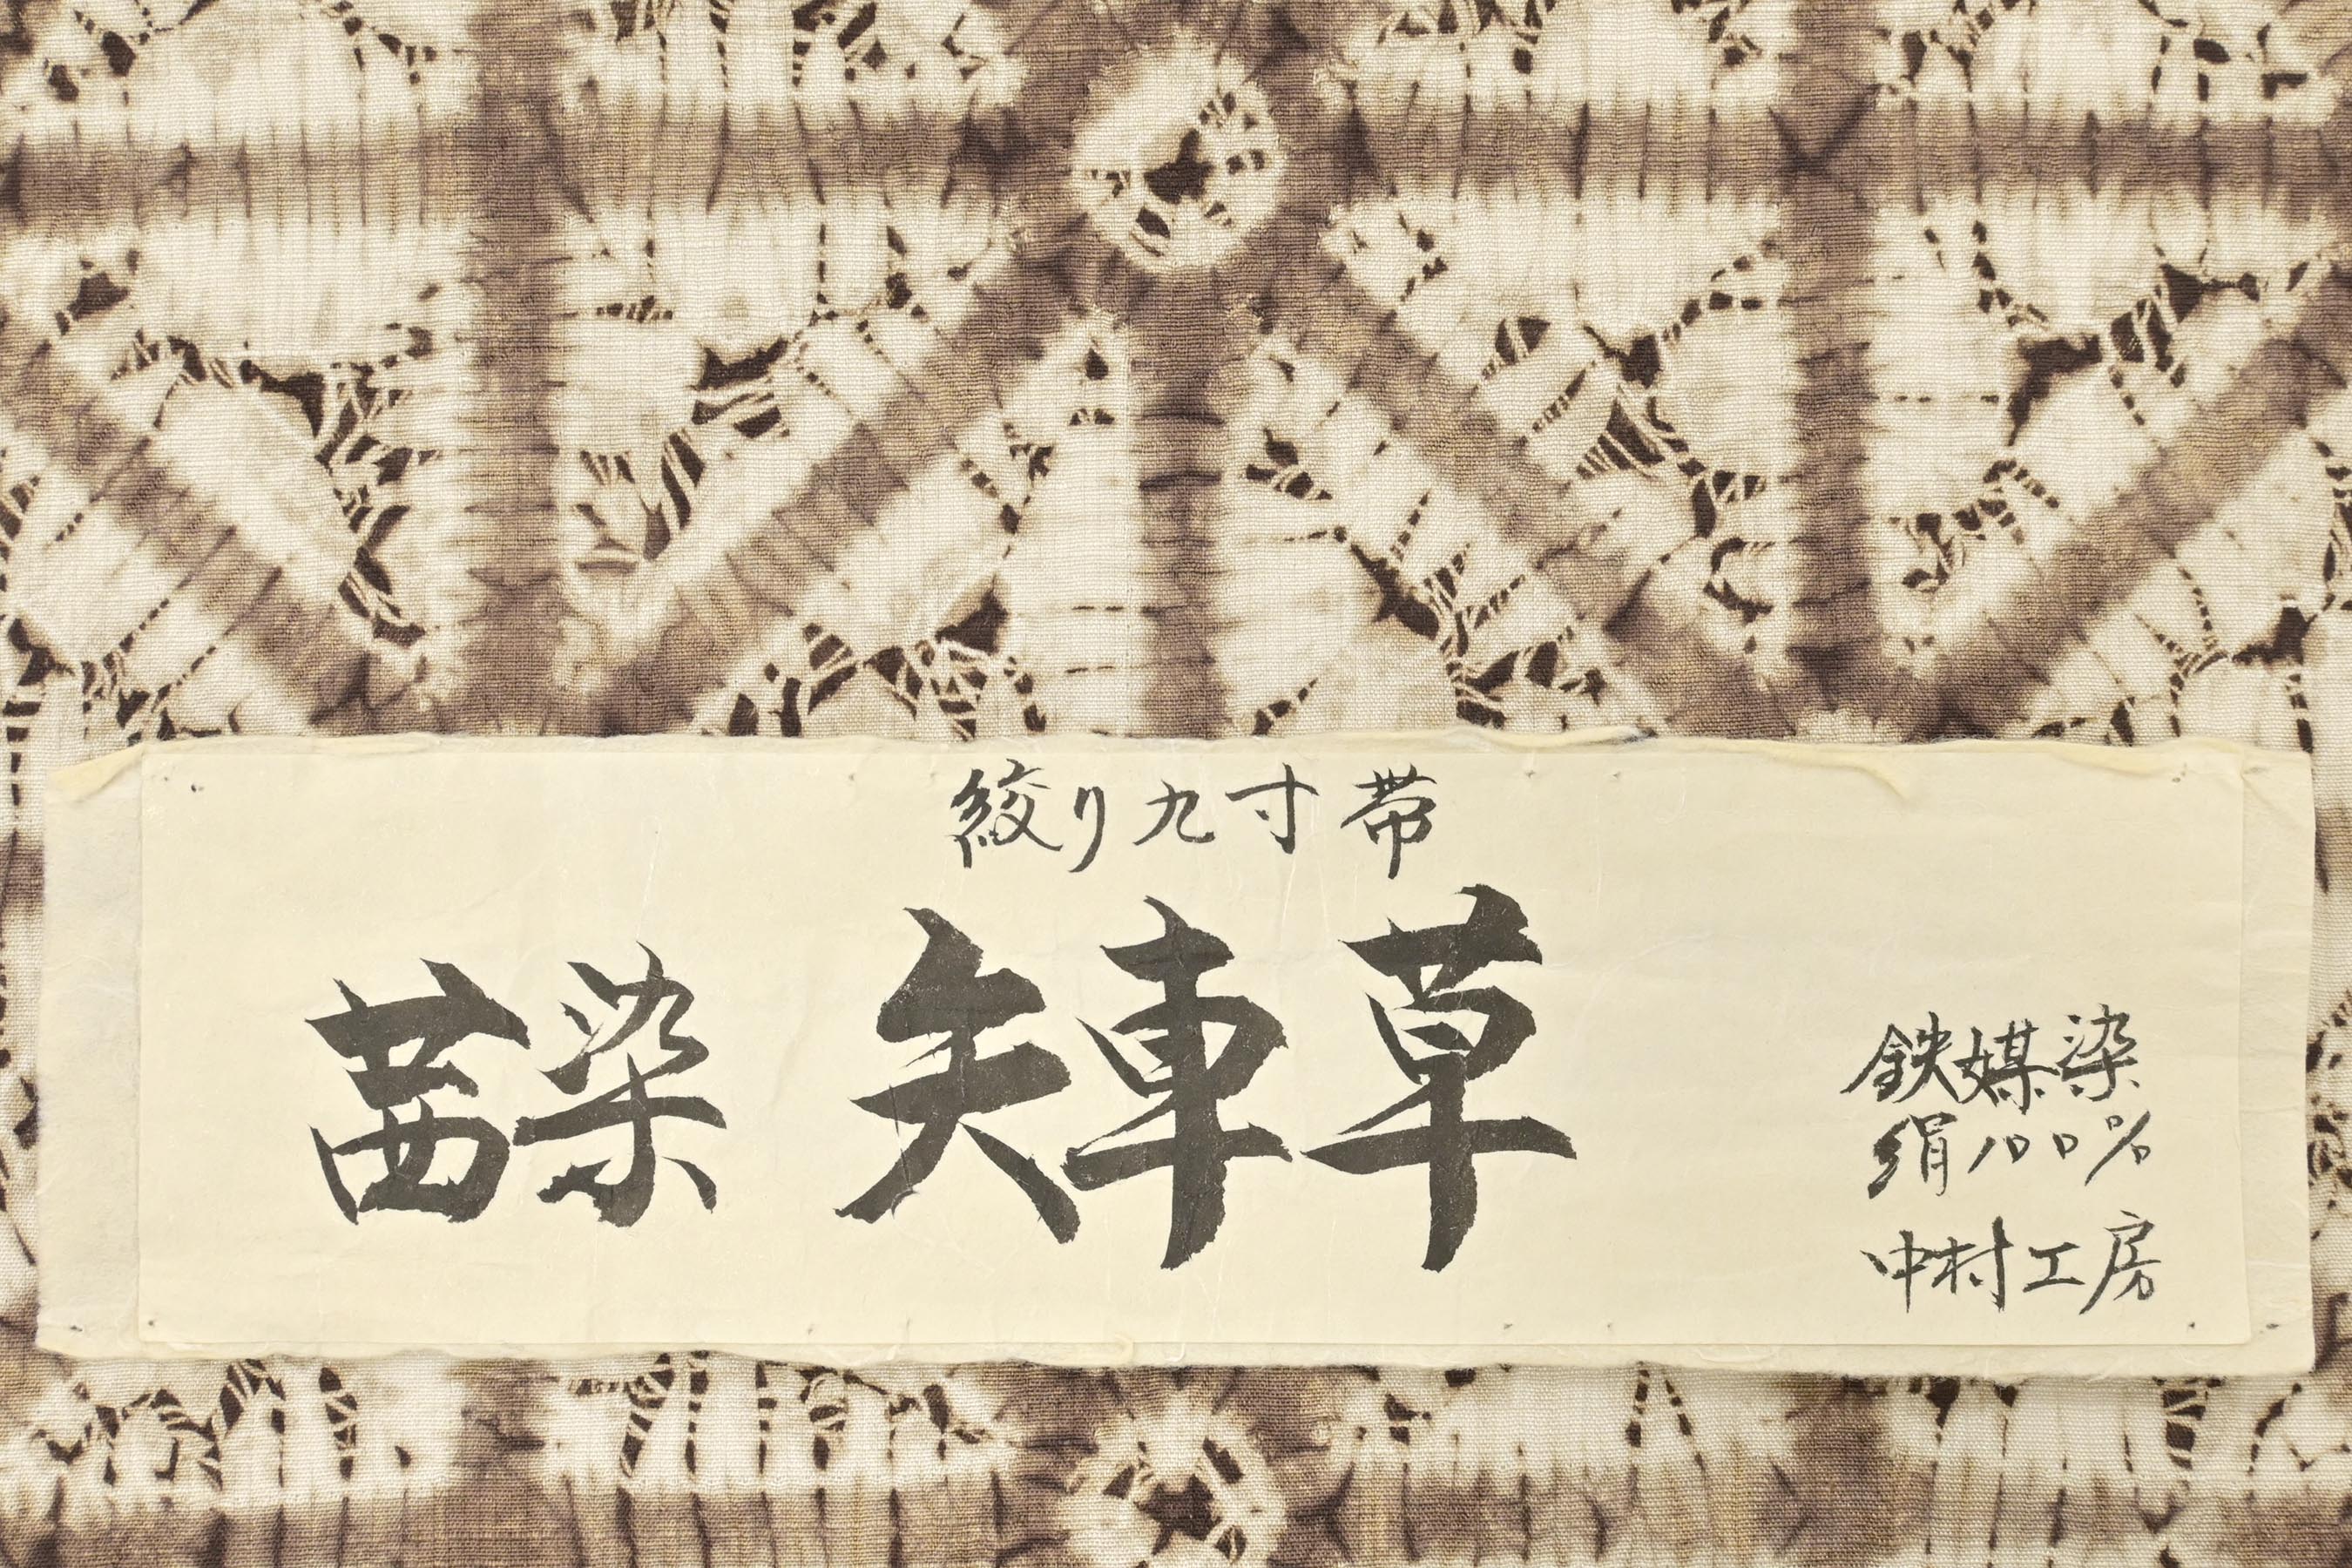 絞り九寸帯
茜染 矢車草
鉄媒染
絹100%
中村工房